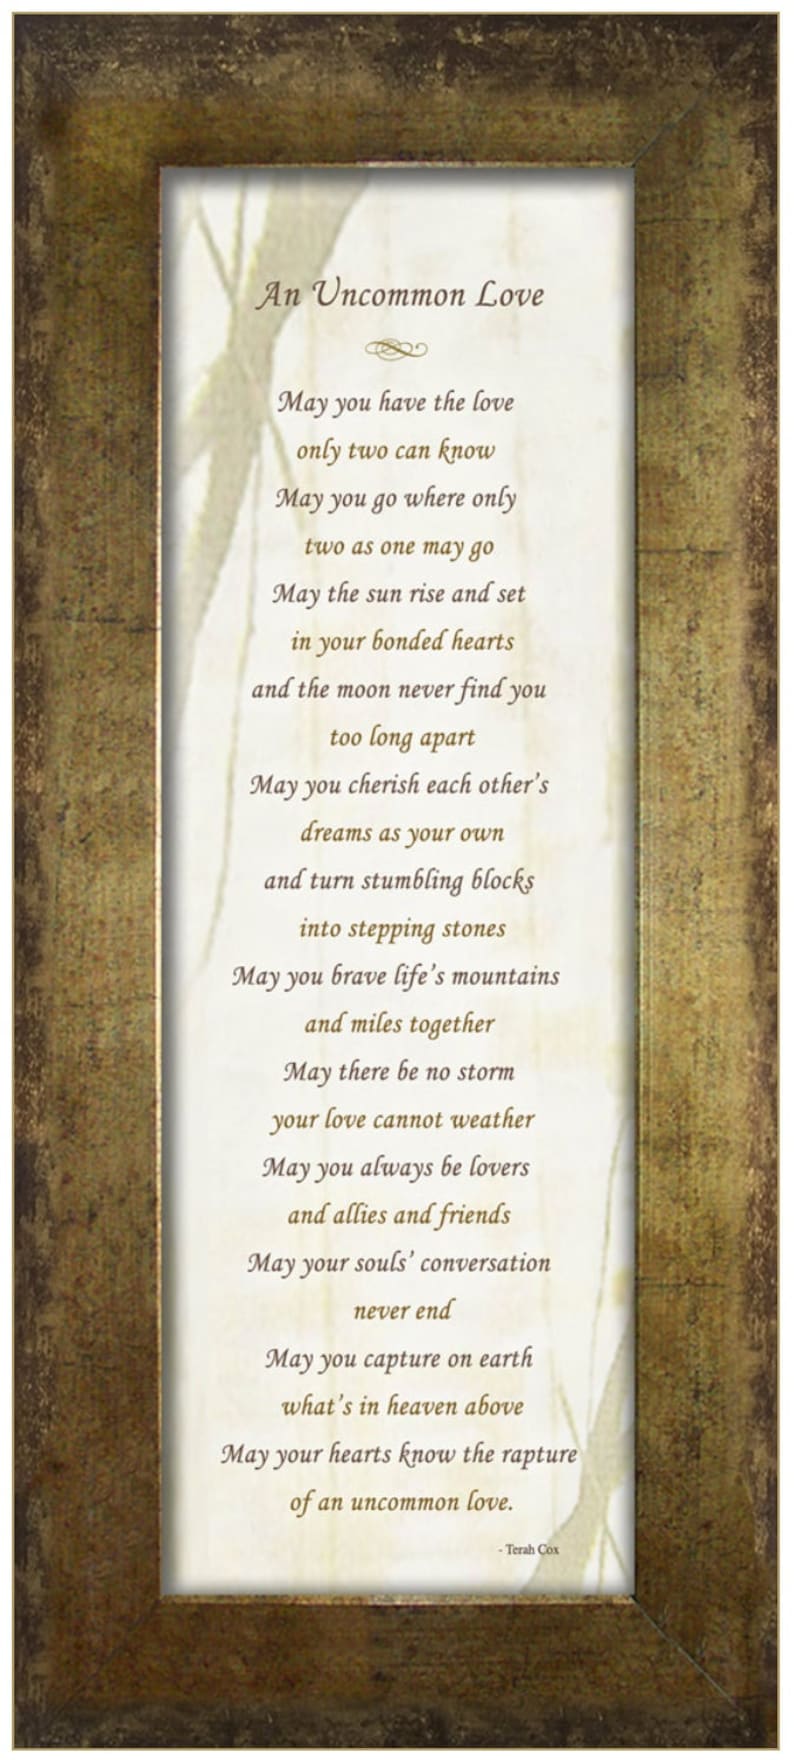 An Uncommon Love
May you have the love
only two can know
May you go where only
two as one may go
May the sun rise and set
in your bonded hearts
and the moon never find you
too long apart
May you cherish each other's
dreams as your own
and turn stumbling blocks
into stepping stones
May you brave life's mountains
and miles together
May there be no storm
your love cannot weather
May you always be lovers
and allies and friends
May your souls' conversation
never end
May you capture on earth
what's in heaven above
May your hearts know the rapture
of an uncommon love.
- Terah Cox